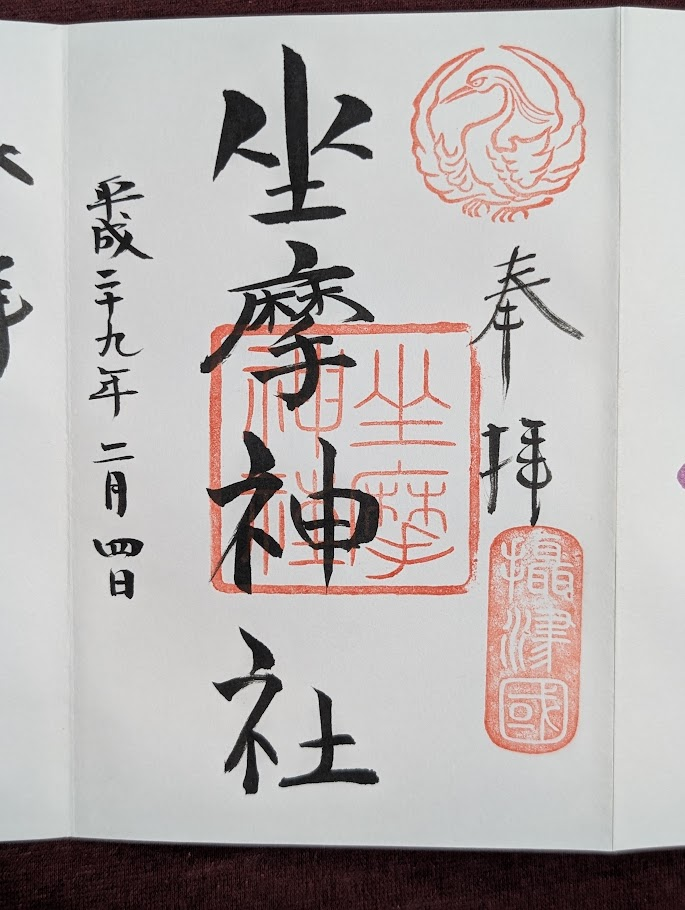 奉拝
攝津國
坐摩神社
坐摩
神社
平成二十九年二月四日